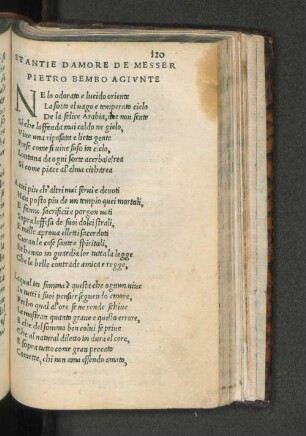 120
STANTIE D'AMORE DE MESSER
PIETRO BEMBO AGIVNTE
NE lo odorato e lucido oriente
La sotto el uago e temperato cielo
De la felice Arabia, che non sente
Si che loffenda mai caldo ne gielo,
Viue una riposata e lieta gente
come si uiue suso in cielo,
Lontana da ogni sorte acerba e rea
Si come piace al'alma citharea
piu ch'altri mai serui e deuoti
posto piu de un tempio quei mortali,
E fanno sacrificii e porgon uoti
Sopra de suoi dolci strali,
E mille a proua eletti sacerdoti
le cose sante e spiritali,
Et hanno in guardia lor tutta la legge
Che le belle contrade amica e regge,
Laqual in somma è questa che ognun uiue
In tutti i suoi pensier seguendo amore,
Perho qual'or se ne rende schiue
La mostran quanto graue e questo errore,
E che del sommo ben colui se priue
Che al natural diletto indura el core,
E sopra tutto come gran peccato
Comette, chi non ama essendo amato,